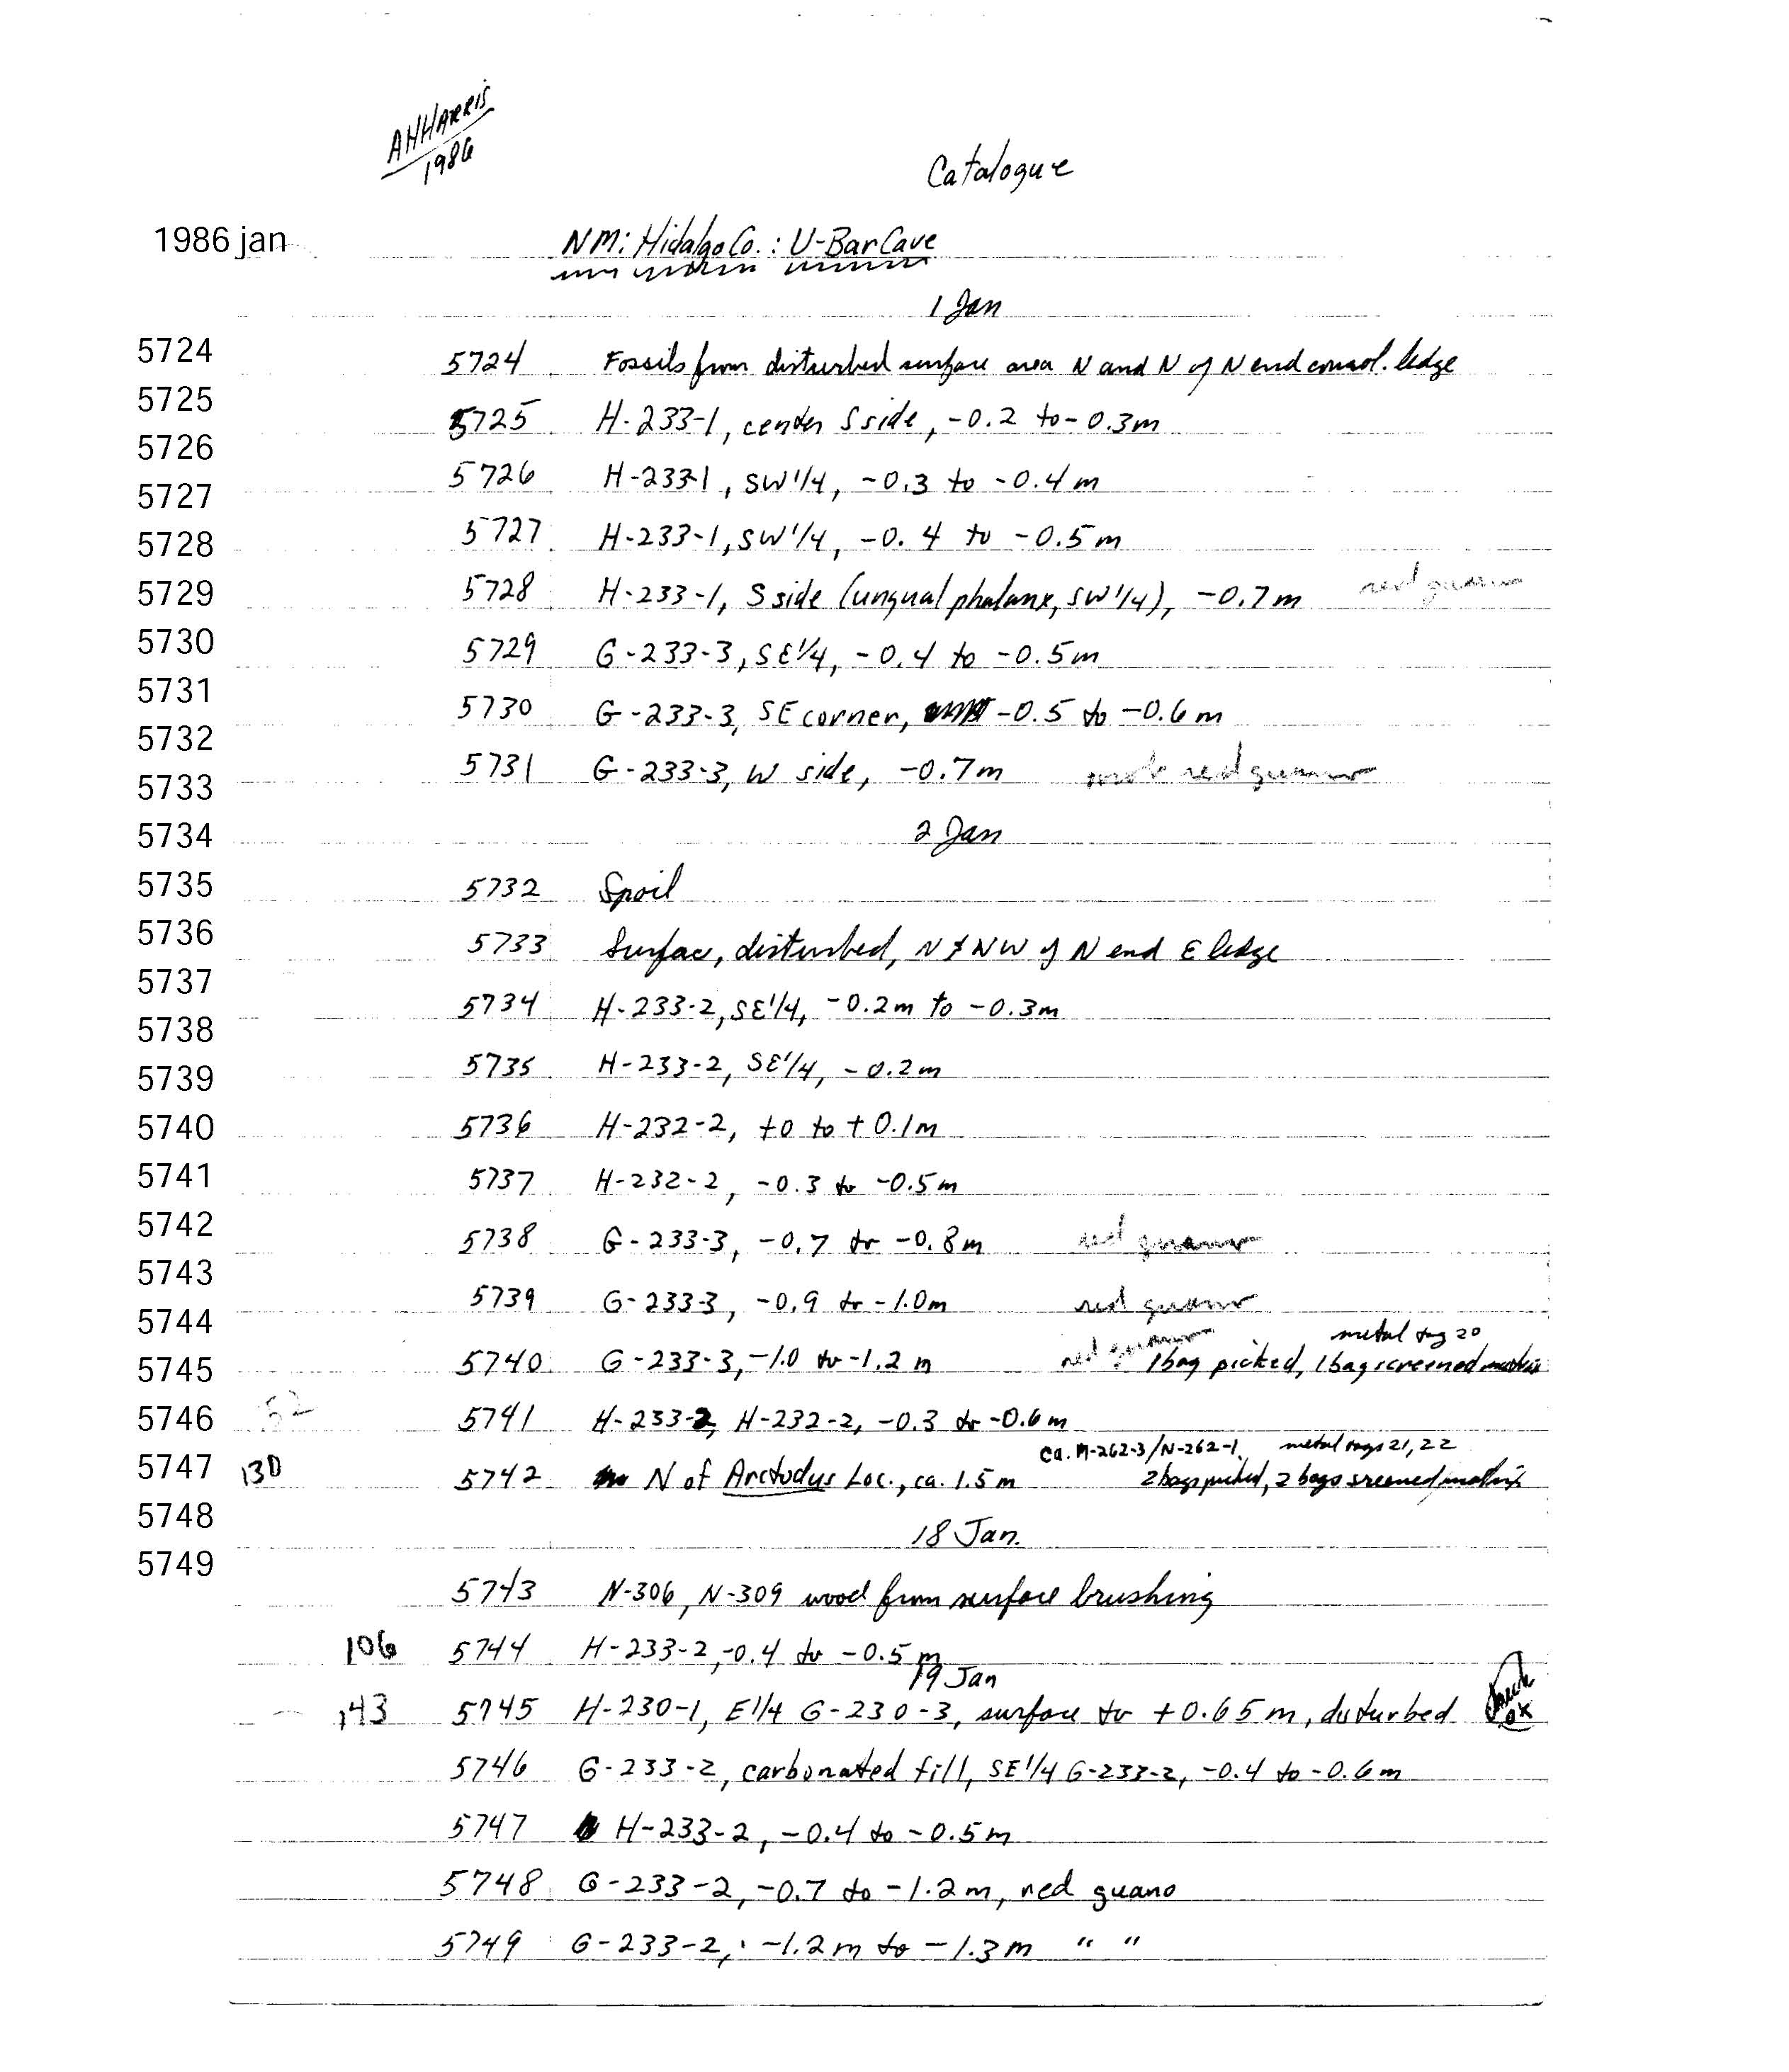 AHHARRIS
1986
Catalogue
1986 jan
NM: Hidalgo Co.: U-Bar Cave
1 Jan
5724
5724 Fossils from disturbed surface area N and N of N end consol. ledge
5725
5725 H-233-1, center S side, -0.2 to -0.3m
5726
5726 H-233-1, SW 1/4, -0.3 to -0.4m
5727
5727 H-233-1, SW 1/4, -0.4 to -0.5m
5728
5728 H-233-1, S side (ungual phalanx, SW 1/4), -0.7m red guano
5729
5729 G-233-3, SE 1/4, -0.4 to -0.5m
5730
5730 G-233-3, SE corner, -0.5 to -0.6m
5731
5731 G-233-3, W side, -0.7m red guano
5732
5733
2 Jan
5734
5732 Spoil
5735
5733 Surface, disturbed, N & NW of N end E ledge
5736
5737
5734 H-233-2, SE 1/4, -0.2m to -0.3m
5738
5735 H-233-2, SE 1/4, -0.2m
5739
5736 H-232-2, +0 to +0.1m
5740
5737 H-232-2, -0.3 to -0.5m
5741
5738 G-233-3, -0.7 to -0.8m red guano
5742
5743
5739 G-233-3, -0.9 to -1.0m red guano
5744
metal tag 20
5740 G-233-3, -1.0 to -1.2m red guano 1 bag picked, 1 bag screened matrix
5745
52 5741 H-233-2, H-232-2, -0.3 to -0.6m
5746
ca. M-262-3/N-262-1, metal tags 21, 22
5747
130 5742 N of Arctodus Loc., ca. 1.5m 2 bags picked, 2 bags screened matrix
5748
18 Jan.
5749
5743 N-306, N-309 wood from surface brushing
106 5744 H-233-2, -0.4 to -0.5m
19 Jan
143 5745 H-230-1, E 1/4 G-230-3, surface to +0.65m, disturbed ok
5746 G-233-2, carbonated fill, SE 1/4 G-233-2, -0.4 to -0.6m
5747 H-233-2, -0.4 to -0.5m
5748 G-233-2, -0.7 to -1.2m, red guano
5749 G-233-2, -1.2m to -1.3m " "